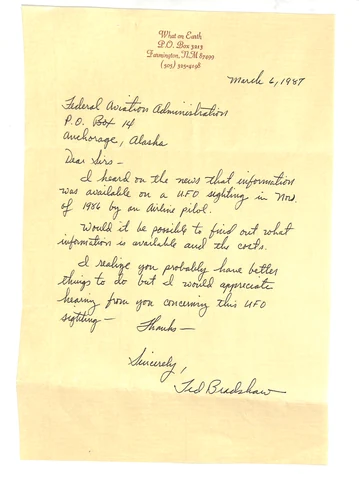 What on Earth
P.O. Box 3213
Farmington, NM 87499
March 6, 1987
Federal Aviation Administration
P.O. Box 14
Anchorage, Alaska
Dear Sirs -
I heard on the news that information
was available on a UFO sighting in Nov.
of 1986 by an Airline pilot.
Would it be possible to find out what
information is available and the costs.
I realize you probably have better
things to do but I would appreciate
hearing from you concerning this UFO
sighting - Thanks -
Sincerely,
Ted Bradshaw